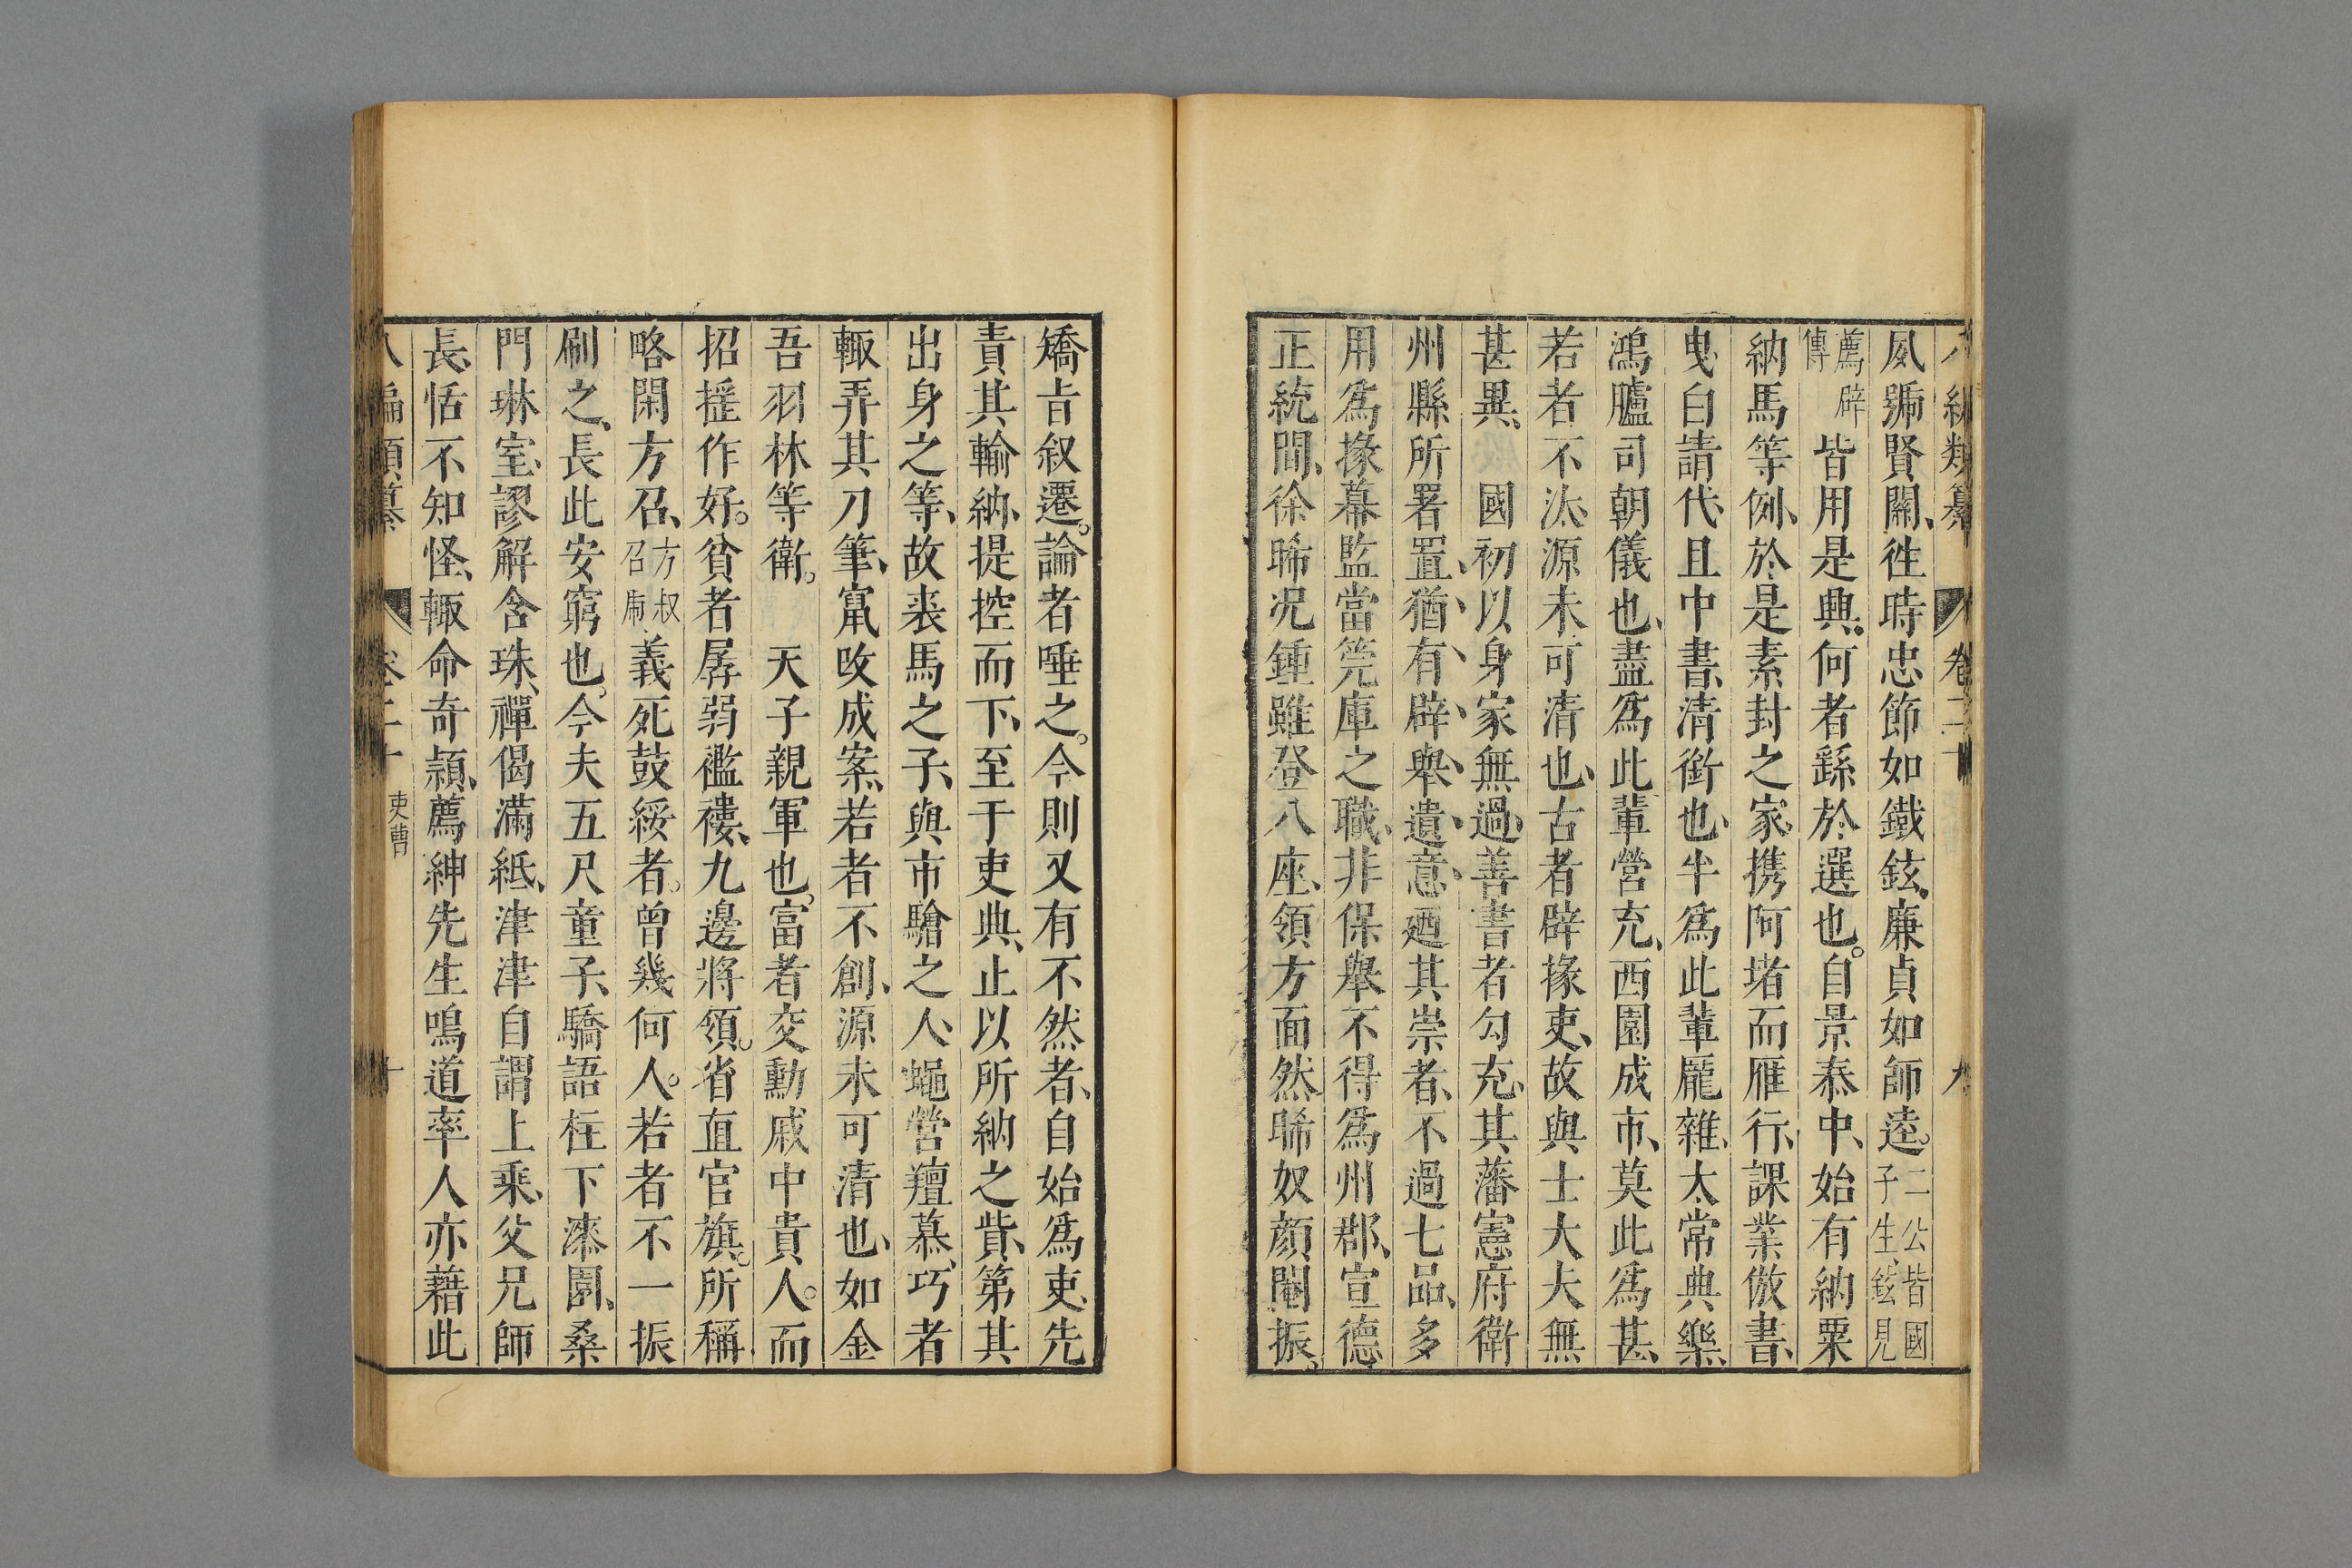 八編類纂 卷二十 九
夙號賢關、徃時忠節如鐵鉉、廉貞如師逵。二公皆國子生、鉉見
薦辟傳皆用是典。何者繇於選也。自景泰中、始有納粟
納馬等例、於是素封之家、携阿堵而雁行、課業倣書、
曳白請代、且中書、清銜也、半爲此輩龐雜、太常典樂、
鴻臚司朝儀也、盡爲此輩營充、西園成市、莫此爲甚、
若者不汰、源未可清也、古者辟掾吏、故與士大夫無
甚異、 國初以身家無過、善書者勾充、其藩憲府衛
州縣所署置、猶有辟舉遺意、廼其崇者、不過七品、多
用爲掾幕監當筦庫之職、非保舉不得爲州郡、宣德
正統間、徐晞况鍾雖登八座、領方面然、晞奴顏閹振。
矯旨叙遷。論者唾之。今則又有不然者、自始爲吏、先
責其輸納、提控而下、至于吏典、止以所納之貲、第其
出身之等、故裘馬之子、與市駔之人、蠅營羶慕、巧者
輙弄其刀筆、竄攺成案、若者不創、源未可清也、如金
吾羽林等衛。 天子親軍也。富者交勳戚中貴人。而
招搖作好。貧者孱弱襤褸、九邊將領。省直官旗。所稱
略閑方召、方叔召虎義死鼓綏者。曾幾何人。若者不一振
刷之、長此安窮也。今夫五尺童子、驕語柱下漆園、桑
門琳室、謬解含珠、禪偈滿紙、津津自謂上乘、父兄師
長、恬不知怪、輙命奇頴、薦紳先生鳴道率人亦藉此
八編類纂 卷二十 吏曹 十